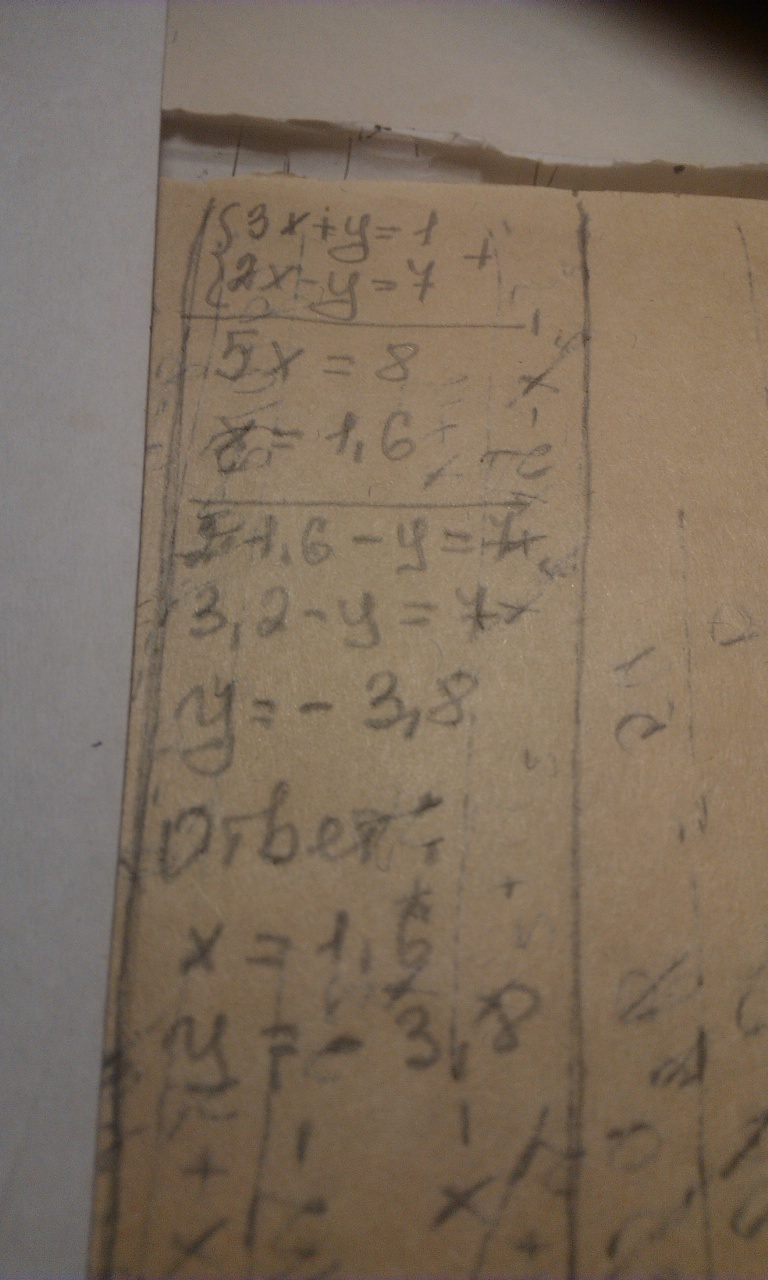 {3x+y=1
{2x-y=7 +
5x = 8
x = 1,6
2·1,6 - y = 7
3,2 - y = 7
y = - 3,8
Ответ:
x = 1,6
y = - 3,8